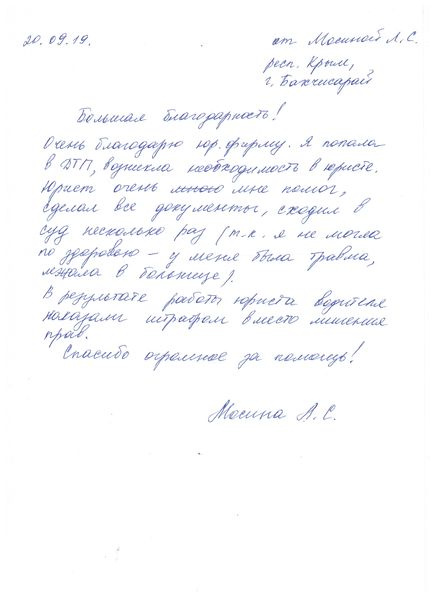 20.09.19.
от Мосиной Л.С.
респ. Крым,
г. Бахчисарай
Большая благодарность!
Очень благодарю юр. фирму. Я попала
в ДТП, возникла необходимость в юристе.
Юрист очень много мне помог,
сделал все документы, сходил в
суд несколько раз (т-к. я не могла
по здоровью – у меня была травма,
лежала в больнице).
В результате работы юриста водителя
наказали штрафом вместо лишения
прав.
Спасибо огромное за помощь!
Мосина Л.С.